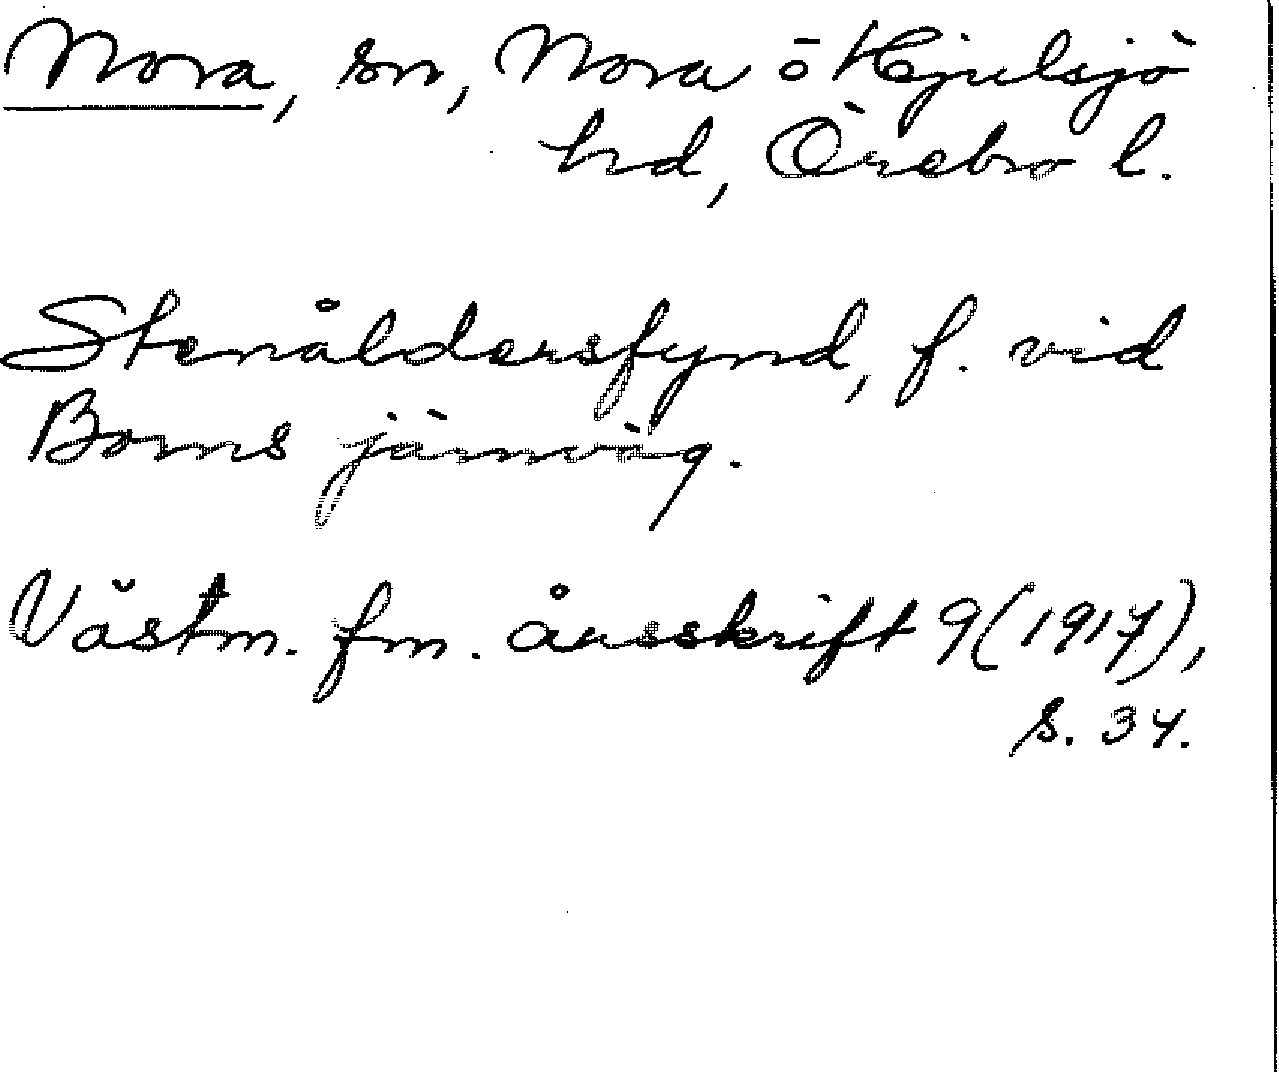 Nora, sn, Nora o Hjulsjö
hd, Örebro l.
Stenåldersfynd, f. vid
Boms järnväg.
Västm. fm. årsskrift 9 (1917),
s. 34.